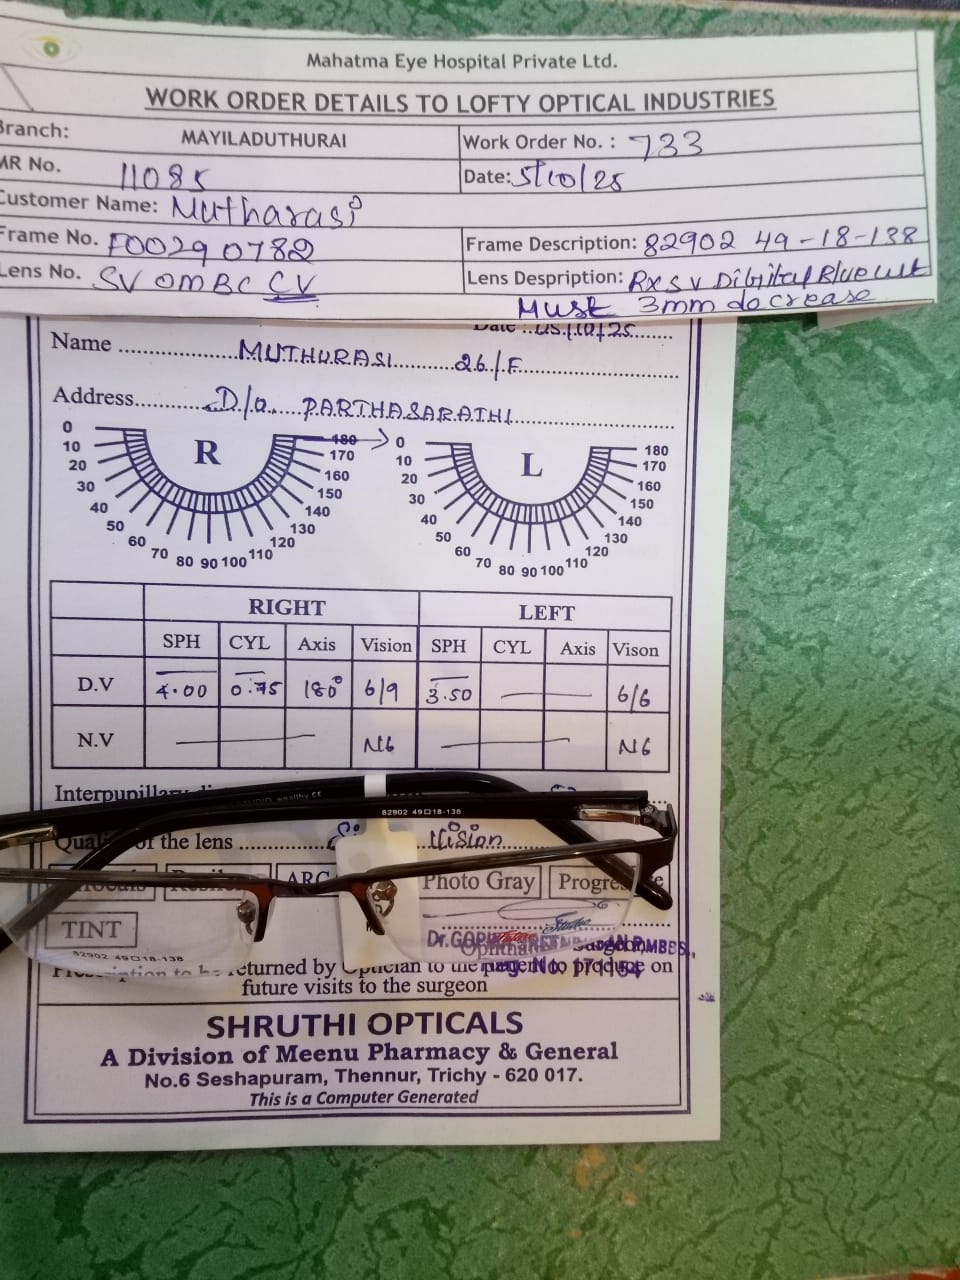 Mahatma Eye Hospital Private Ltd.
WORK ORDER DETAILS TO LOFTY OPTICAL INDUSTRIES
Branch: MAYILADUTHURAI Work Order No. : 733
MR No. 11085 Date: 5/10/25
Customer Name: Mutharasi
Frame No. F00290782 Frame Description: 82902 49-18-138
Lens No. SV OMBC CV Lens Despription: RX SV Digital Bluecut
Must 3mm decrease
Date
Name MUTHURASI 26/F
Address D/o. PARTHASARATHI
0 10 20 30 40 50 60 70 80 90 100 110 120 130 140 150 160 170 180
R
0 10 20 30 40 50 60 70 80 90 100 110 120 130 140 150 160 170 180
L
RIGHT LEFT
SPH CYL Axis Vision SPH CYL Axis Vison
D.V 4.00 0.75 180° 6/9 3.50 6/6
N.V N6 N6
82902 49□18-138
of the lens Vision
ARC Photo Gray
TINT
82902 49□18-138
returned by Optician to the on
future visits to the surgeon
SHRUTHI OPTICALS
A Division of Meenu Pharmacy & General
No.6 Seshapuram, Thennur, Trichy - 620 017.
This is a Computer Generated